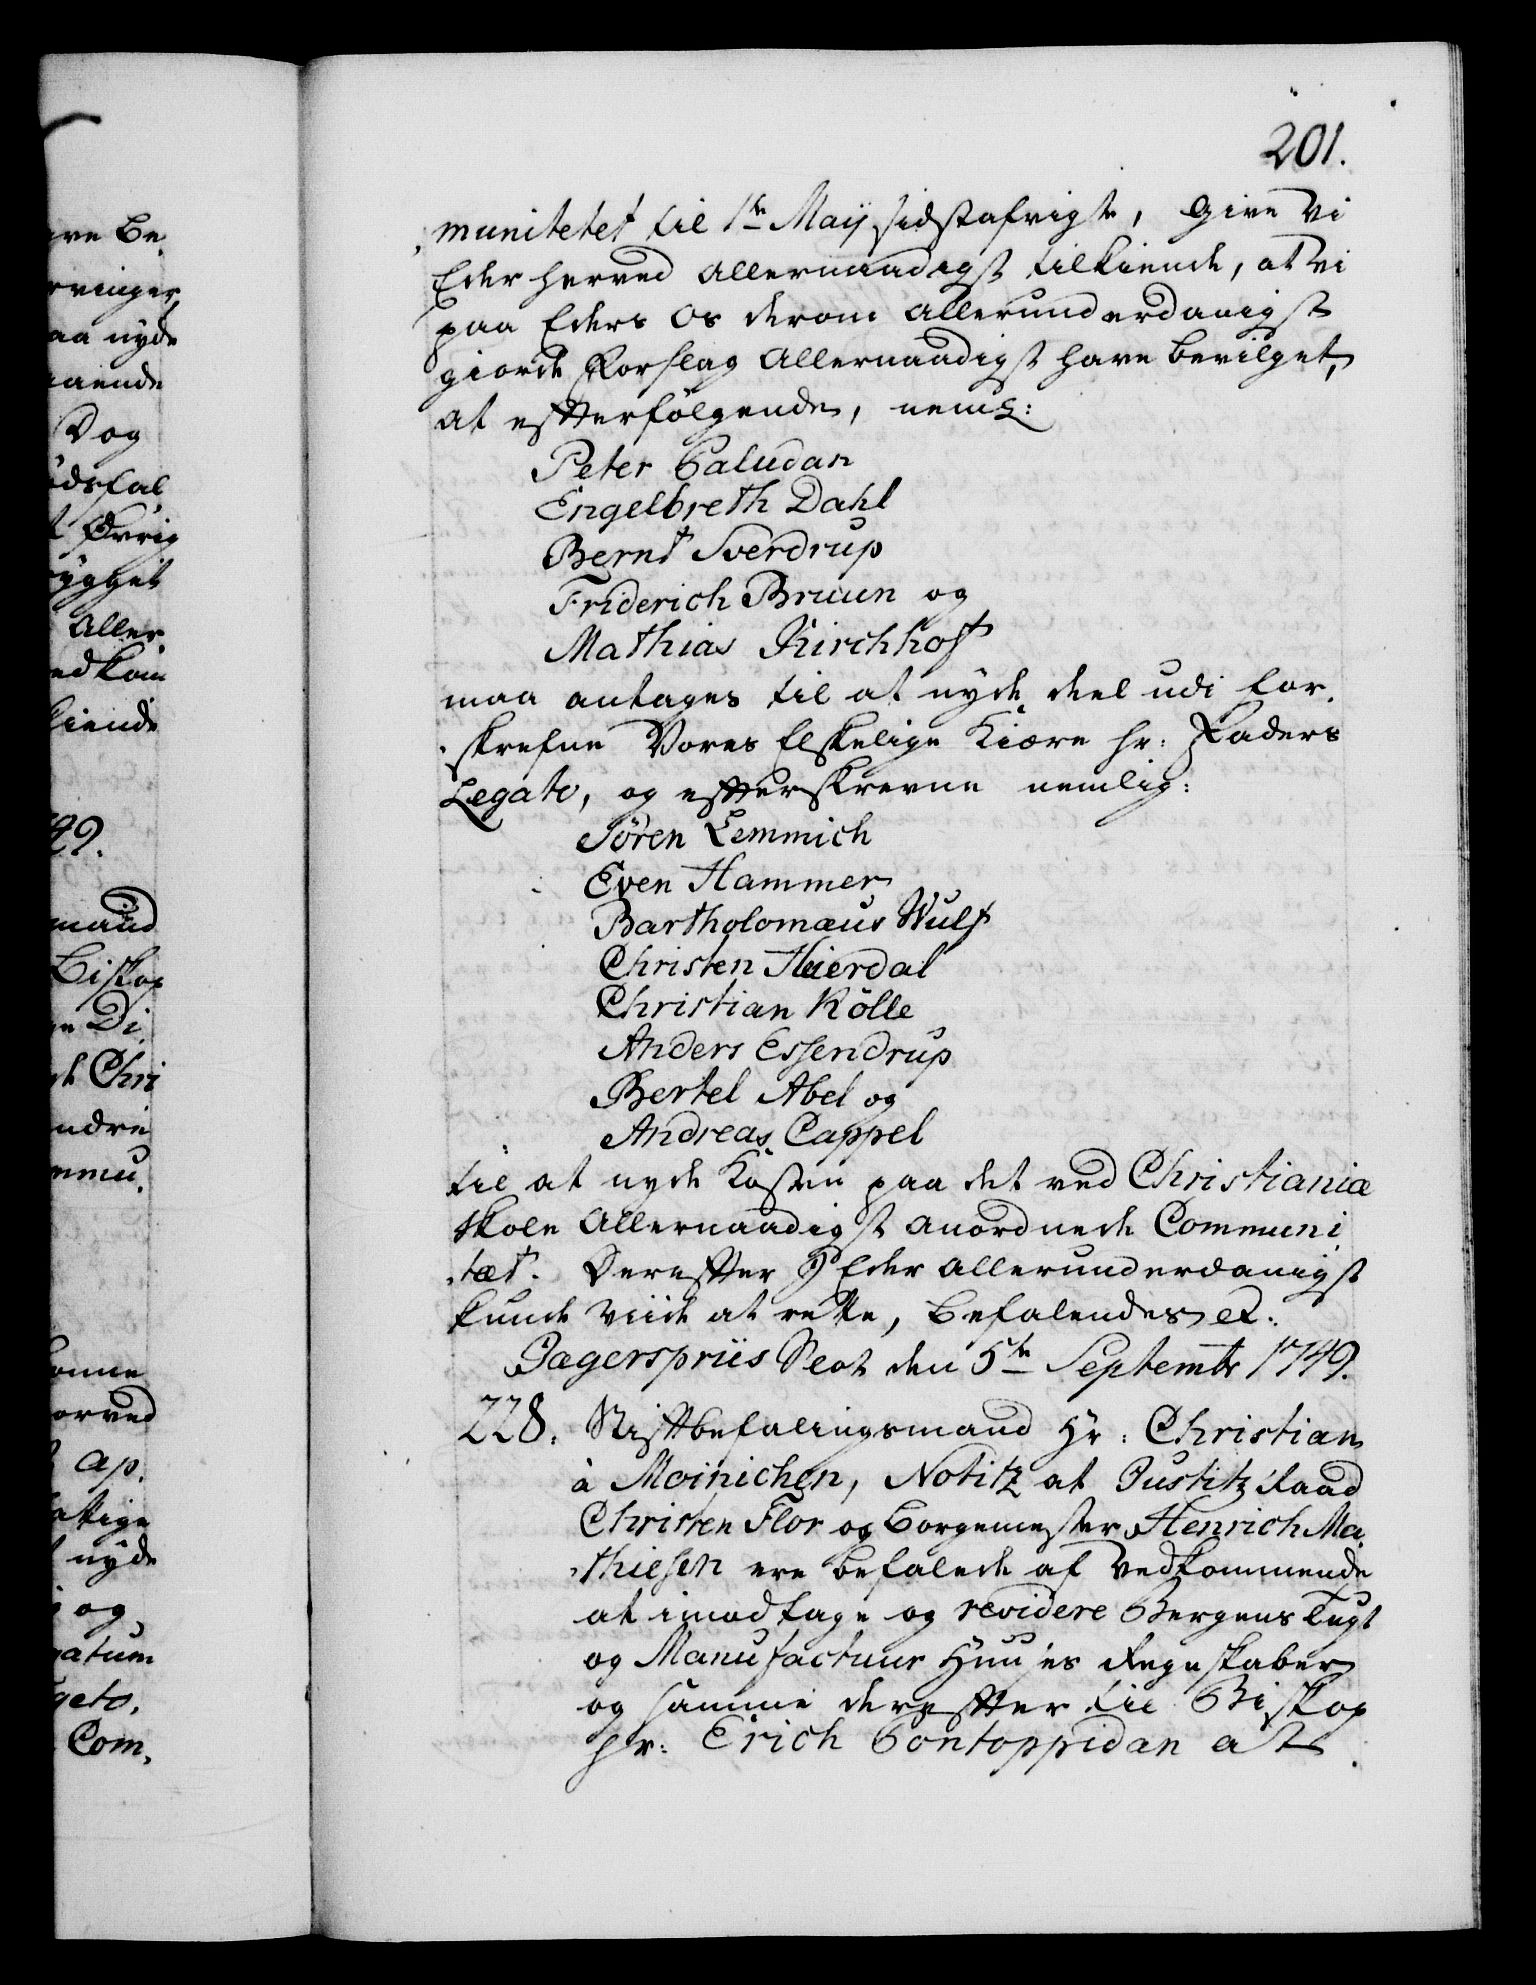 201.
munitetet til 1te Maij sidstafvigte, give Vi
Eder herved Allernaadigst tilkiende, at Vi
paa Eders Os derom Allerunderdanigst
giorde Forslag Allernaadigst have bevilget,
at efterfølgende, neml:
Peter Paludan
Engelbreth Dahl
Bernt Sverdrup
Friderich Bruun og
Mathias Kirchhof
maa antages til at nyde deel udi for-
skrefne Vores Elskelige Kiære Hr: Faders
Legato, og efterskrevne nemlig:
Søren Lemmich
Even Hammer
Bartholomæus Wulf
Christen Heierdal
Christian Rölle
Anders Essendrup
Bertel Abel og
Andreas Cappel
til at nyde Kosten paa det ved Christianiæ
Skole Allernaadigst anordnede Communi
-tæt. Derefter I Eder Allerunderdanigst
kunde viide at rette, befalendes etc.
Jægerspriis Slot den 5te Septembr 1749.
228. Stiftbefalingsmand Hr: Christian
à Moinichen, Notitz at Justitz Raad
Christen Flor og Borgemester Henrich Ma-
-thiesen ere befalede af vedkommende
at imodtage og revidere Bergens Tugt
og Manufactuur Huuses Regnskaber
og samme derefter til Biskop
Hr: Erich Pontoppidan at
are Be-
rvinger
aa nyde
aaende
Dog
ødsfal
t Øvrig
ygget
Aller
edkom
kiende
49.
mand
Biskop
Di
Chri
andre
mmu-
onne
orved
ap.
attige
nyde
og
gatum
gato,
Com-